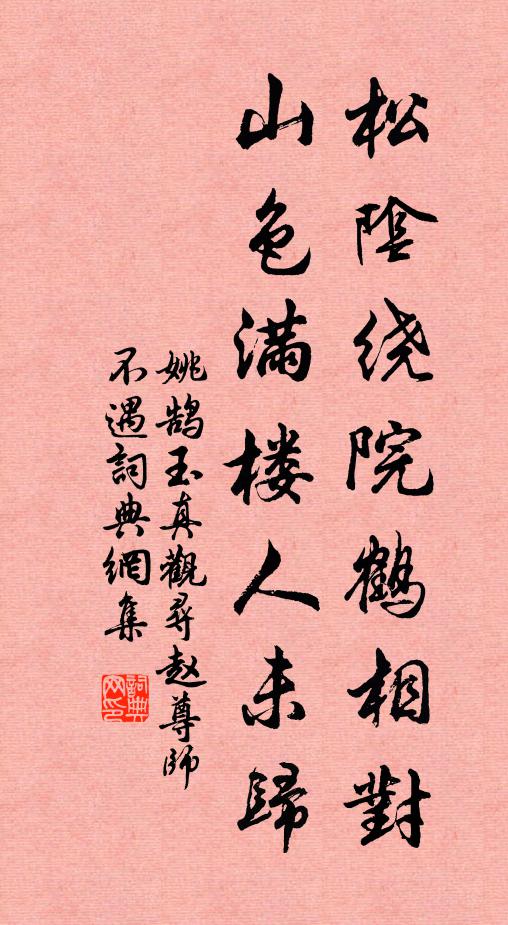 松陰绕院鹤相對
山色满楼人未歸
姚鹄玉真觀寻赵尊師
不遇詞典網集
詞典网印